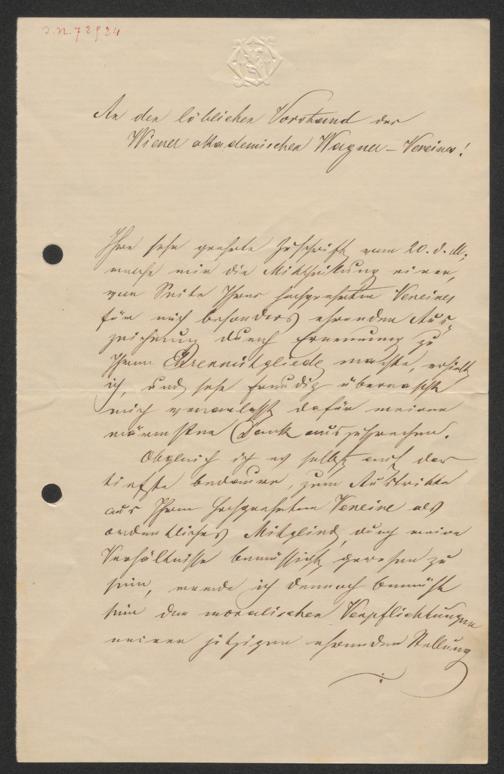 I.N. 72924
An den löblichen Vorstand des
Wiener akademischen Wagner-Vereines!
Ihre sehr geehrte Zuschrift vom 20. d. M.,
welche mir die Mittheilung einer,
von Seite Ihres hochgeehrten Vereines
für mich besonders ehrenden Aus
zeichnung durch Ernennung zu
Ihrem Ehrenmitgliede machte, erhielt
ich, und sehr freudig überrascht
mich dafür meinen
wärmsten Dank auszusprechen.
Obgleich ich es selbst auf das
tiefste bedauere, zum Austritte
aus Ihrem hochgeehrten Vereine als
ordentliches Mitglied, durch meine
Verhältnisse bemüssigt gewesen zu
sein, werde ich dennoch bemüht
sein den moralischen Verpflichtungen
meiner jetzigen ehrenden Stellung